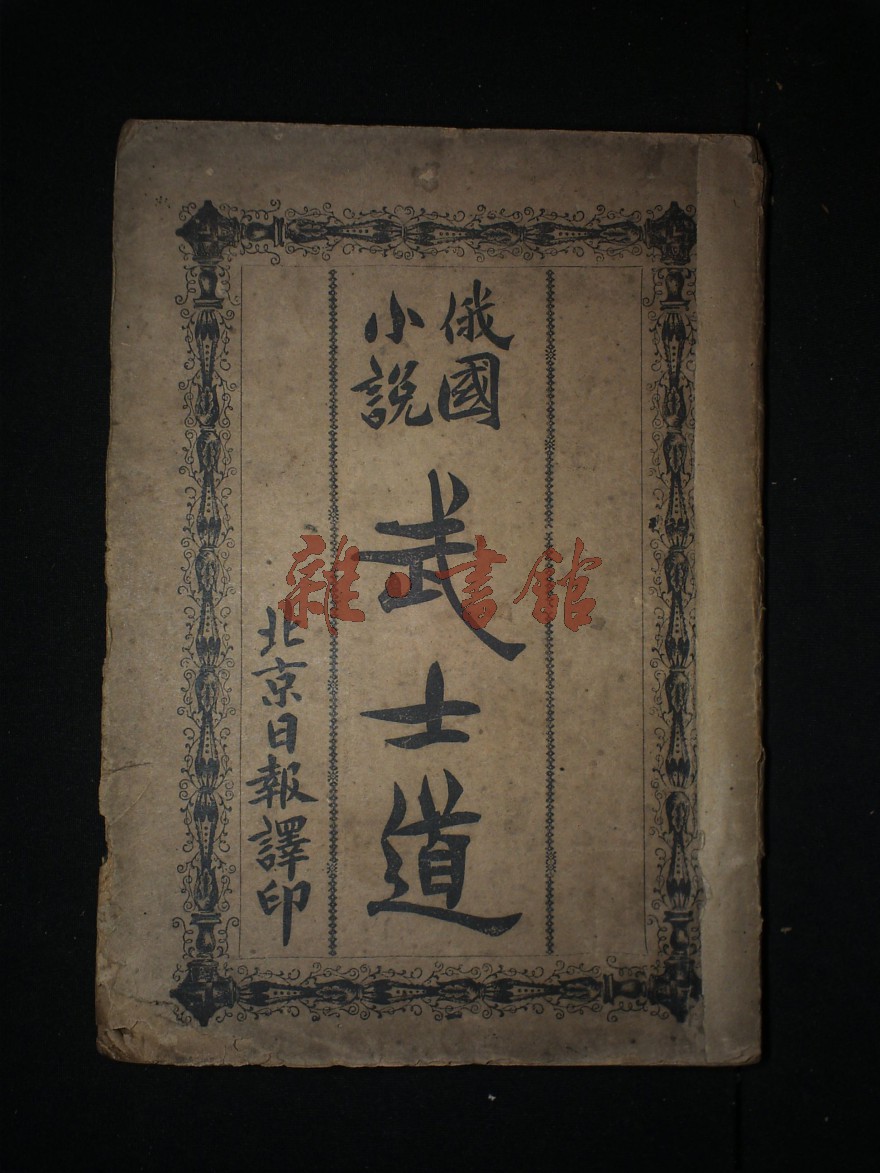 俄國
小說
武士道
北京日報譯印
雜·書館